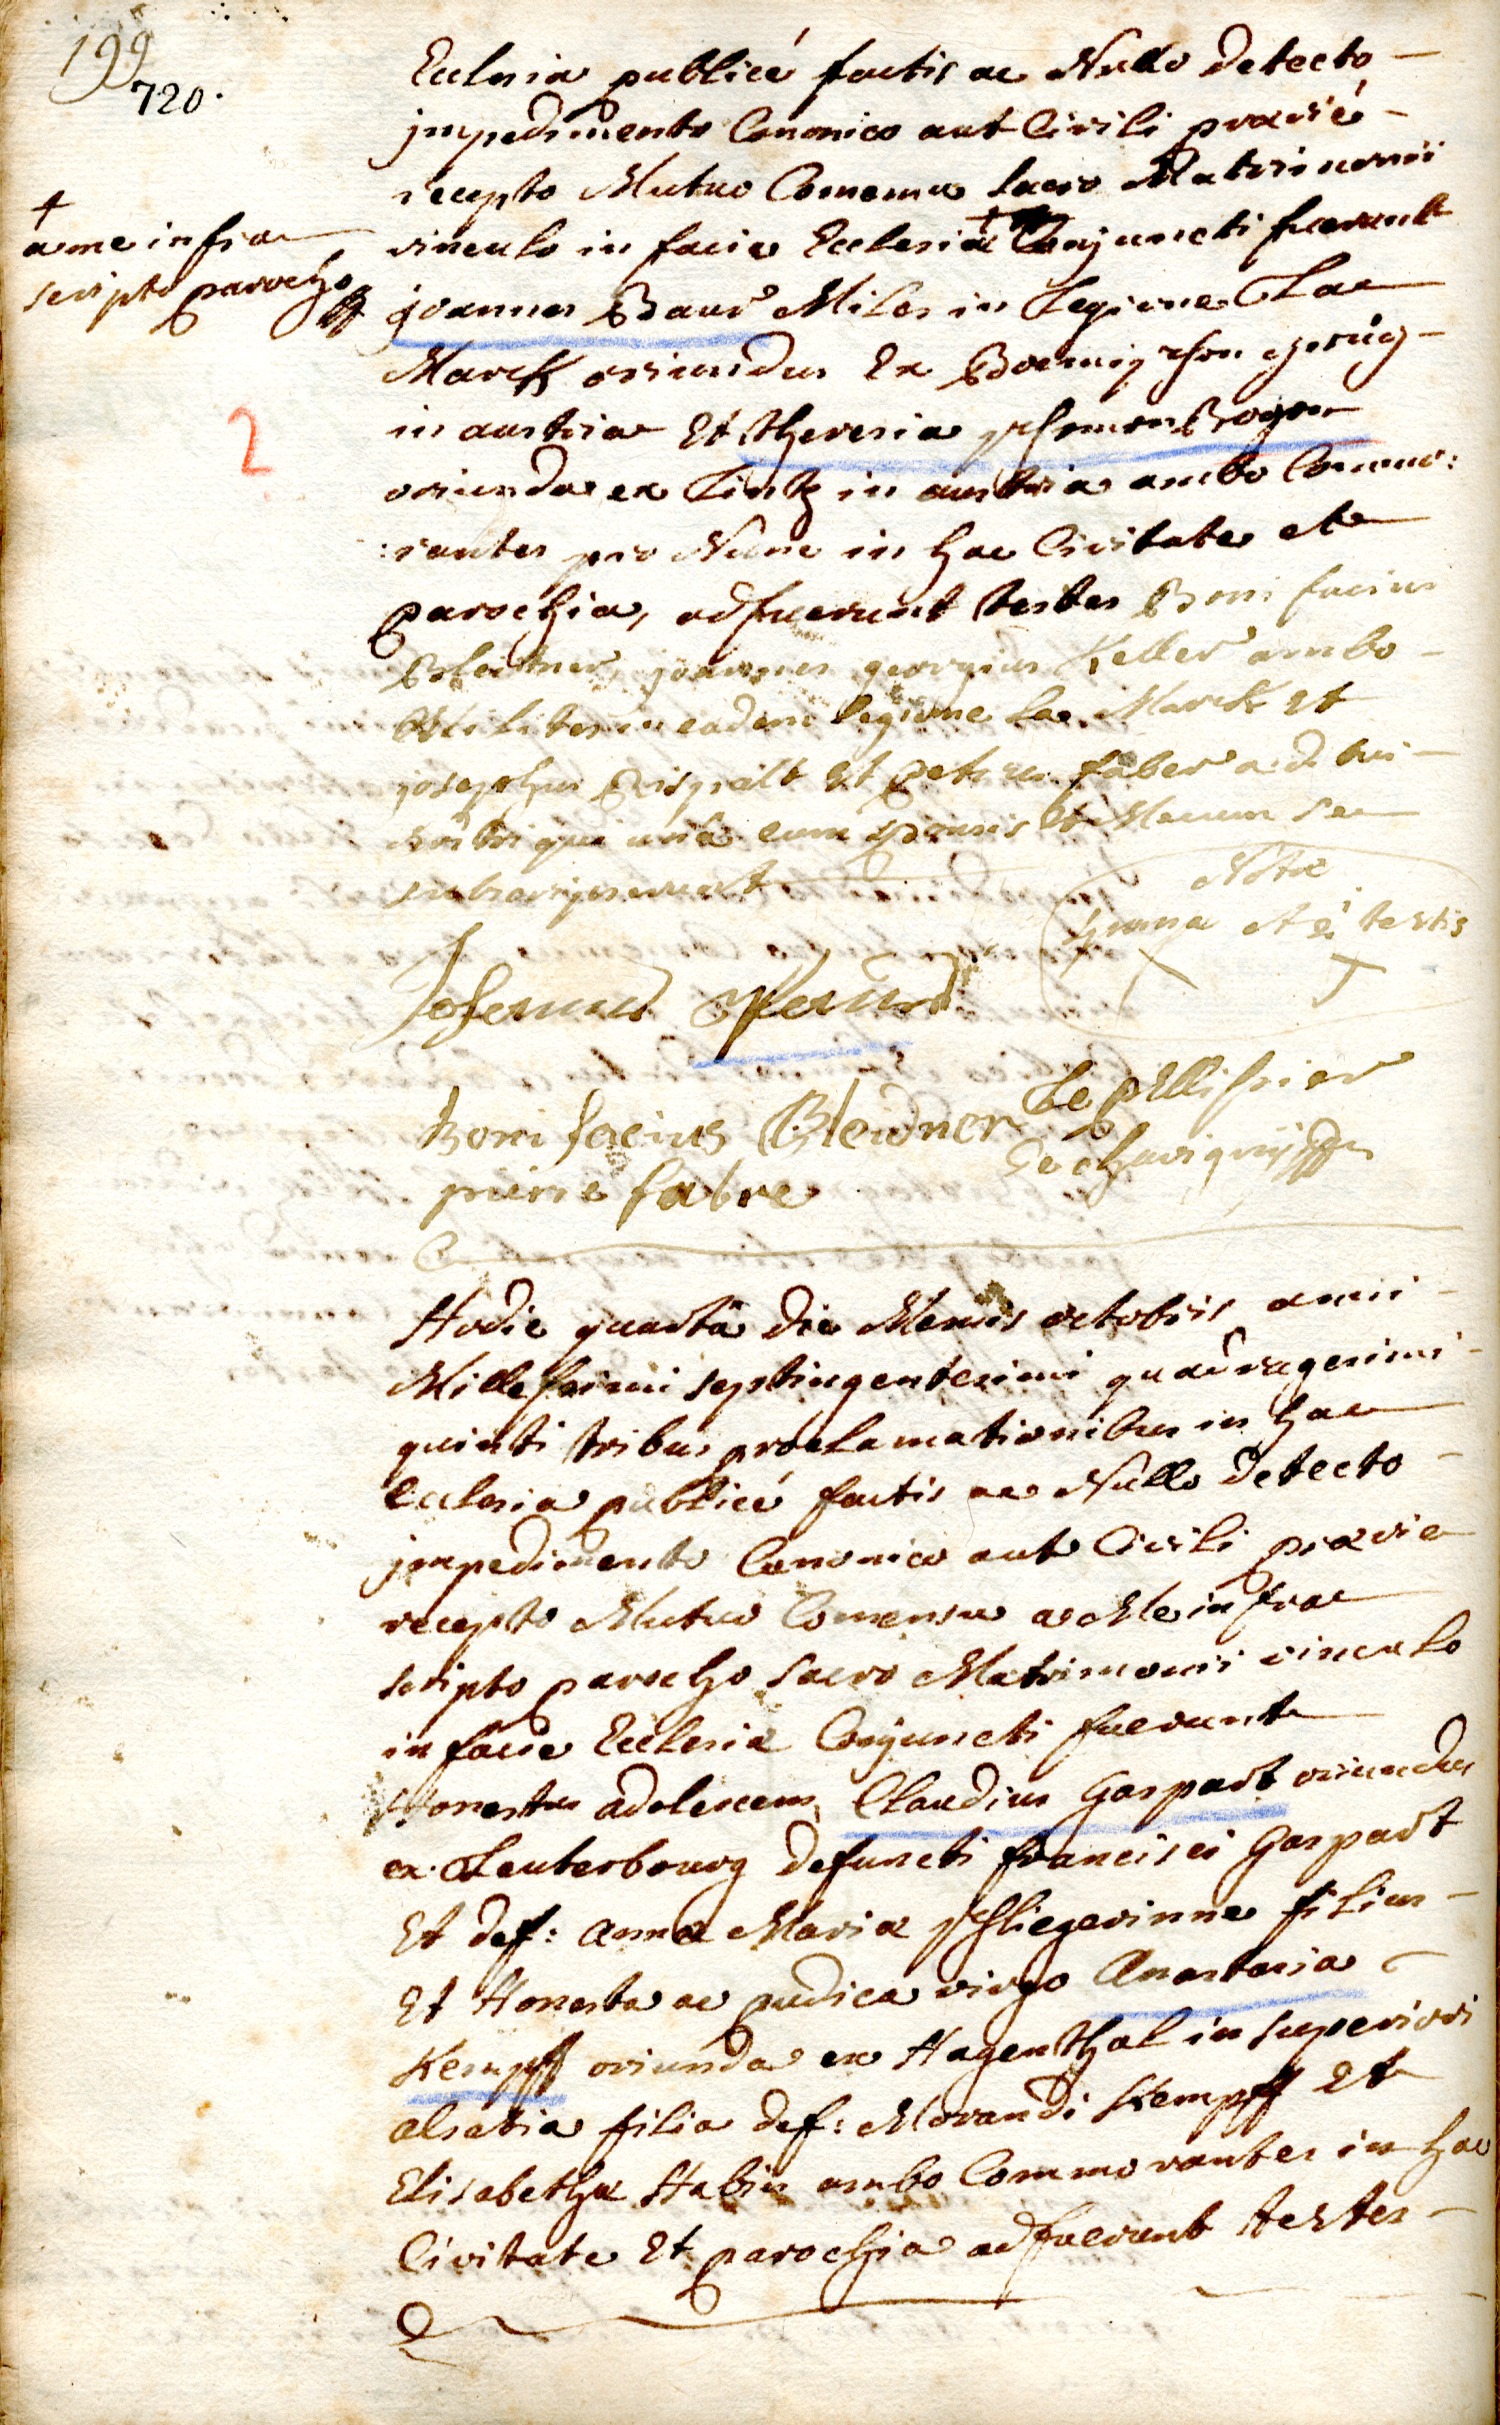 199
720.
Ecclesia publicé factis ac Nullo detecto
jmpedimento Canonico aut Civili prævié
recepto Mutuo Consensu sacro Matrimonii
vinculo in facie Ecclesiæ + Conjuncti fuerunt
+
a me infra
scripto parocho
joannes Baur Miles in Legione La
Marck oriundus Ex
in austria Et theresia
oriunda ex Lintz in austria ambo Commo:
:rantes pro Nunc in hac Civitate et
parochia, adfuerunt testes Bonifacius
Bleidner, joannes georgius Keller ambo
Milites in eadem legione La Marck Et
josephus Et petrus faber
qui unà cum sponsis et Mecum se
subscripserunt
Notæ
sponsæ et 2i testis
Bonifacius Bleidner
pierre fabre
Le pellissier
de chavigny
2
Hodie quartâ die Mensis octobris anni
Millesimi septingentesimi quadragesimi
quinti tribus proclamationibus in hac
Ecclesia publicé factis ac Nullo detecto
jmpedimento Canonico aut Civili prævie
recepto Mutuo Consensu a Me infra
scripto parocho sacro Matrimonii vinculo
in facie Ecclesiæ Conjuncti fuerunt
Honestus adolescens Claudius Gaspart oriundus
ex Lauterbourg defuncti francisci Gaspart
Et def: annæ Mariæ pfliegerinne filius
Et Honesta ac pudica virgo Anastasia
Kempff oriunda ex Hagenthal in superiori
alsatia filia def: Morandi Kempff Et
Elisabethæ Stabin ambo Commorantes in hac
Civitate Et parochia adfuerunt testes